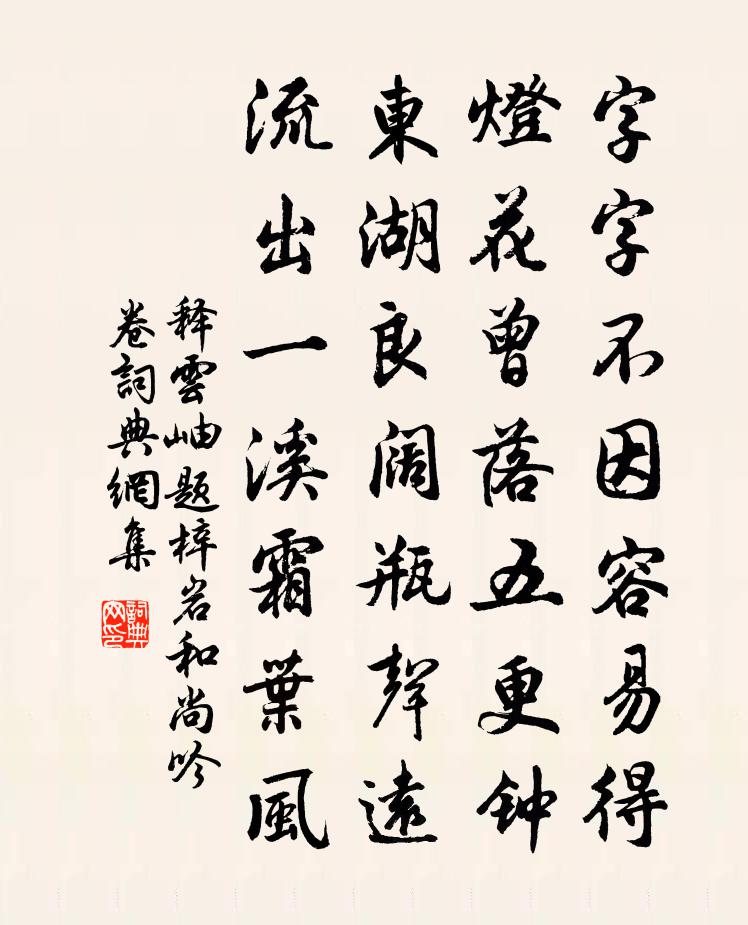 字字不因容易得
燈花曾落五更钟
東湖良阔瓶聲遠
流出一溪霜葉風
释雲岫题梓岩和尚吟
卷詞典網集
詞典网印